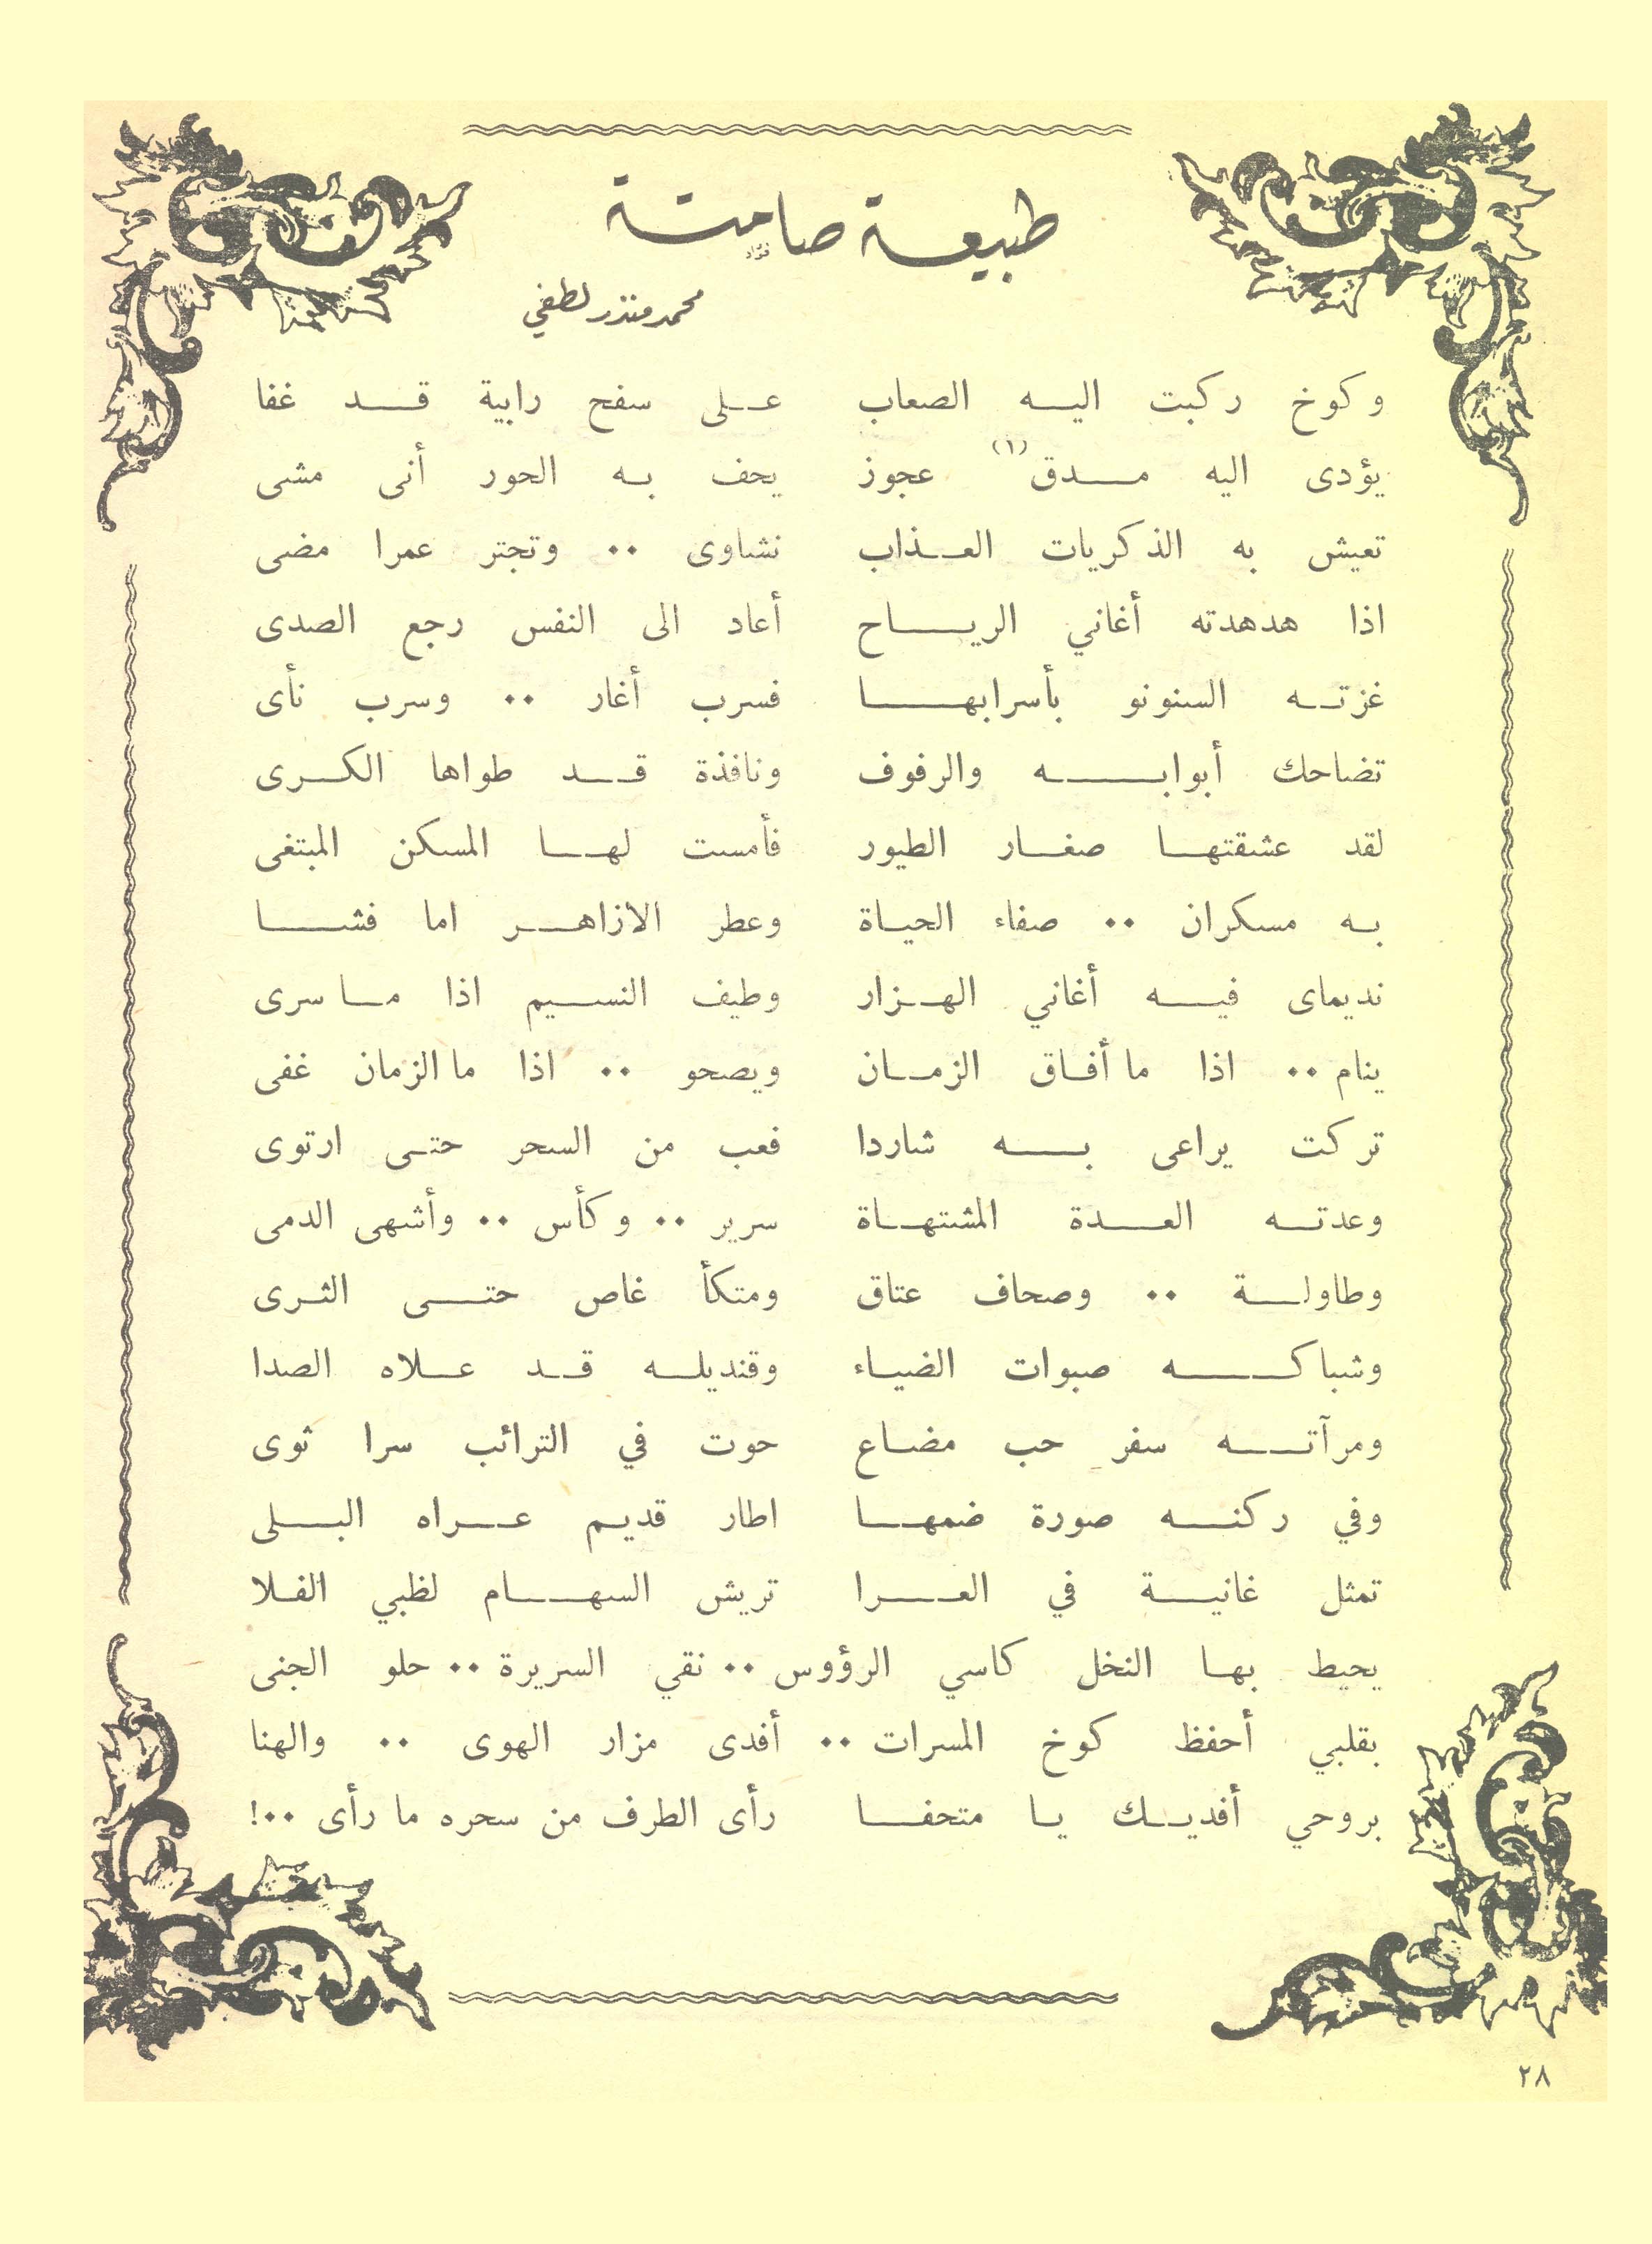 طبيعة صامتة
محمد منذر لطفي
وكوخ ركبت اليه الصعاب على سفح رابية قد غفا
يؤدى اليه مدق (١) عجوز يحف به الحور أنى مشى
تعيش به الذكريات العذاب نشاوى ٠٠ وتجتر عمرا مضى
اذا هدهدته أغاني الرياح أعاد الى النفس رجع الصدى
غزته السنونو بأسرابها فسرب أغار ٠٠ وسرب نأى
تضاحك أبوابه والرفوف ونافذة قد طواها الكرى
لقد عشقتها صغار الطيور فأمست لها المسكن المبتغى
به مسكران ٠٠ صفاء الحياة وعطر الازاهر اما فشا
نديماى فيه أغاني الهزار وطيف النسيم اذا ما سرى
ينام ٠٠ اذا ما أفاق الزمان ويصحو ٠٠ اذا ما الزمان غفى
تركت يراعى به شاردا فعب من السحر حتى ارتوى
وعدته العدة المشتهاة سرير ٠٠ وكأس ٠٠ وأشهى الدمى
وطاولة ٠٠ وصحاف عتاق ومتكأ غاص حتى الثرى
وشباكه صبوات الضياء وقنديله قد علاه الصدا
ومرآته سفر حب مضاع حوت في الترائب سرا ثوى
وفي ركنه صورة ضمها اطار قديم عراه البلى
تمثل غانية في العرا تريش السهام لظبي الفلا
يحيط بها النخل كاسي الرؤوس ٠٠ نقي السريرة ٠٠ حلو الجنى
بقلبي أحفظ كوخ المسرات ٠٠ أفدى مزار الهوى ٠٠ والهنا
بروحي أفديك يا متحفا رأى الطرف من سحره ما رأى ٠٠!
٢٨